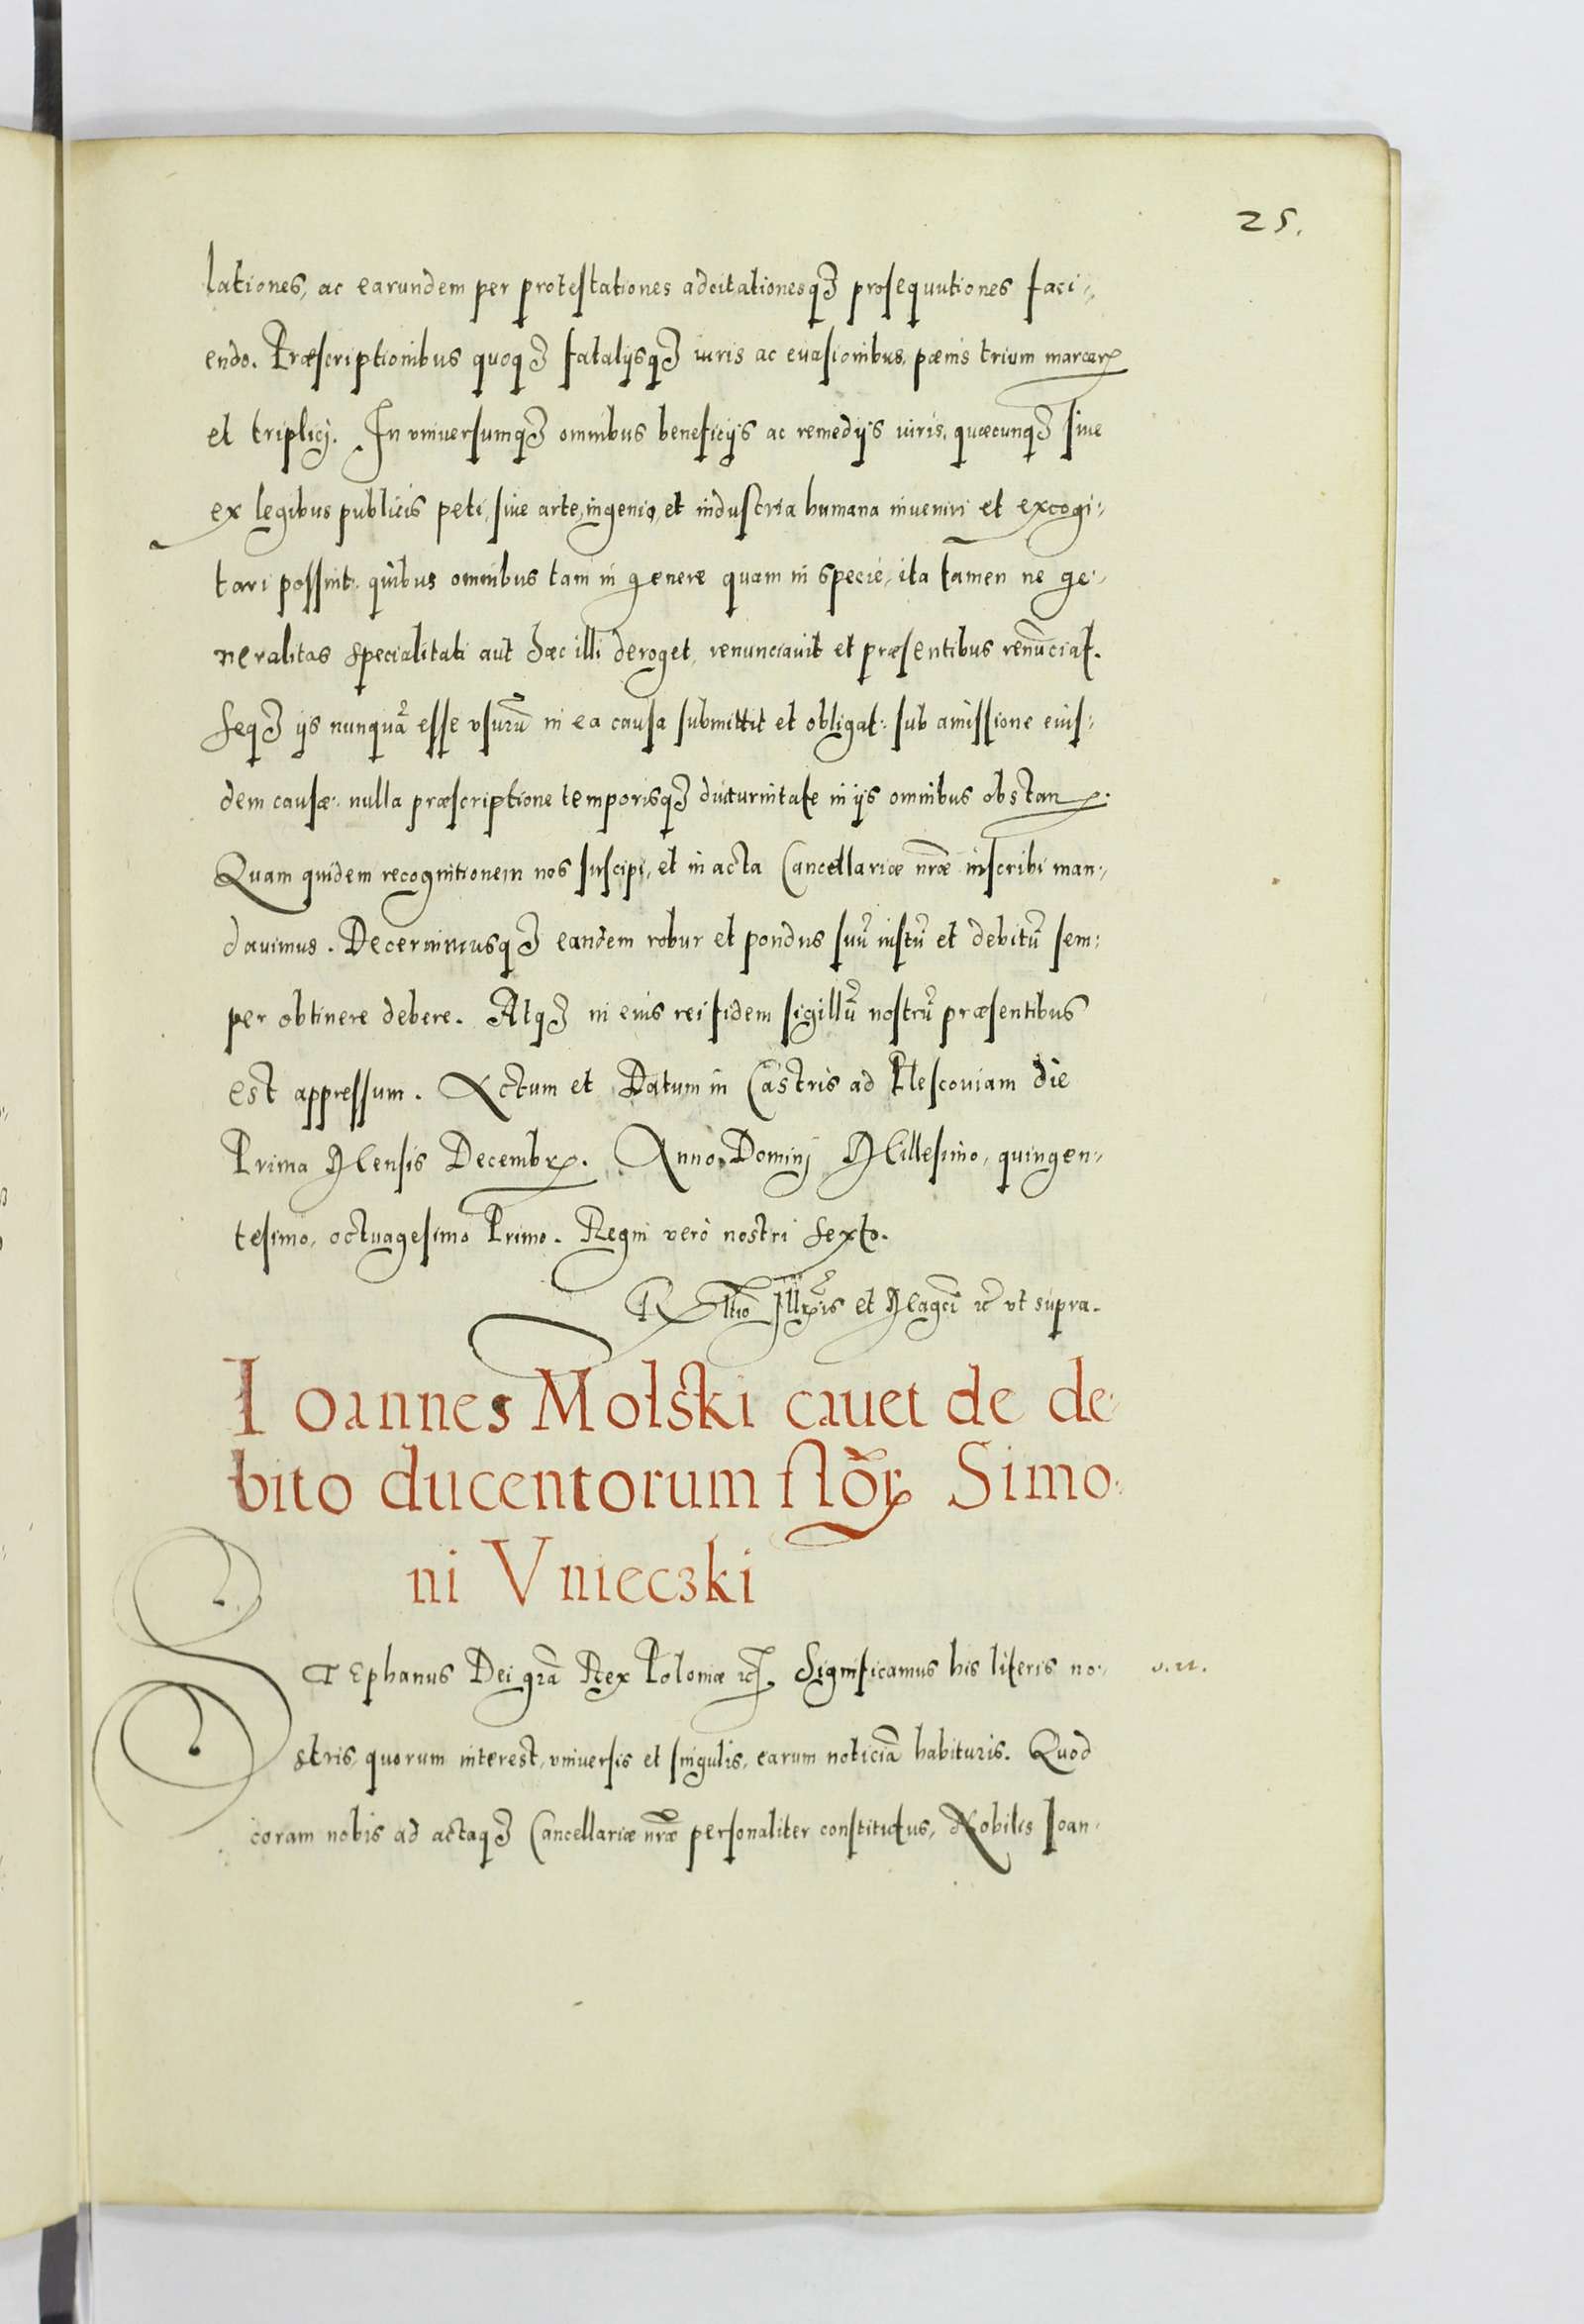 25.
lationes, ac earundem per protestationes adcitationesqꝫ prosequutiones faci-
endo. Præscriptionibus quoqꝫ fatalijsqꝫ iuris ac euasionibus, pœnis trium marcarꝝ
et triplicj. In vniversumqꝫ omnibus beneficijs ac remedijs iuris, quæcunqꝫ siue
ex legibus publicis peti, siue arte, ingenio, et industria humana inueniri et excogi:
tari possint: quibus omnibus tam in genere quam in specie, ita tamen ne ge:
neralitas specialitati aut hæc illi deroget, renunciauit et præsentibus renũciat.
Seqꝫ ijs nunquã esse vsurũ in ea causa submittit et obligat: sub amissione eius:
dem causæ: nulla præscriptione temporisqꝫ diuturnitate in ijs omnibus obstan.
Quam quidem recognitionem nos suscipi, et in acta Cancellariæ nrãe inscribi man:
davimus. Decernimusqꝫ eandem robur et pondus suũ iustũ et debitũ sem:
per obtinere debere. Atqꝫ in eius rei fidem sigillũ nostrũ præsentibus
est appressum. Actum et Datum in Castris ad Plescoviam die
Prima Mensis Decembꝝ. Anno Dominj Millesimo, quingen-
tesimo, octuagesimo Primo. Regni verò nostri sexto.
et Magcĩ ꝛc̃ vt supra.
Ioannes Molski cauet de de:
bito ducentorum flõꝝ Simo:
ni Vnieczki
STEphanus Dei grã Rex Poloniæ ꝛc̃. Significamus his literis no: v.n.
stris, quorum interest, vniversis et singulis, earum noticiã habituris. Quod
coram nobis ad actaqꝫ Cancellariæ nrãe personaliter constitutus, Nobilis Ioan: